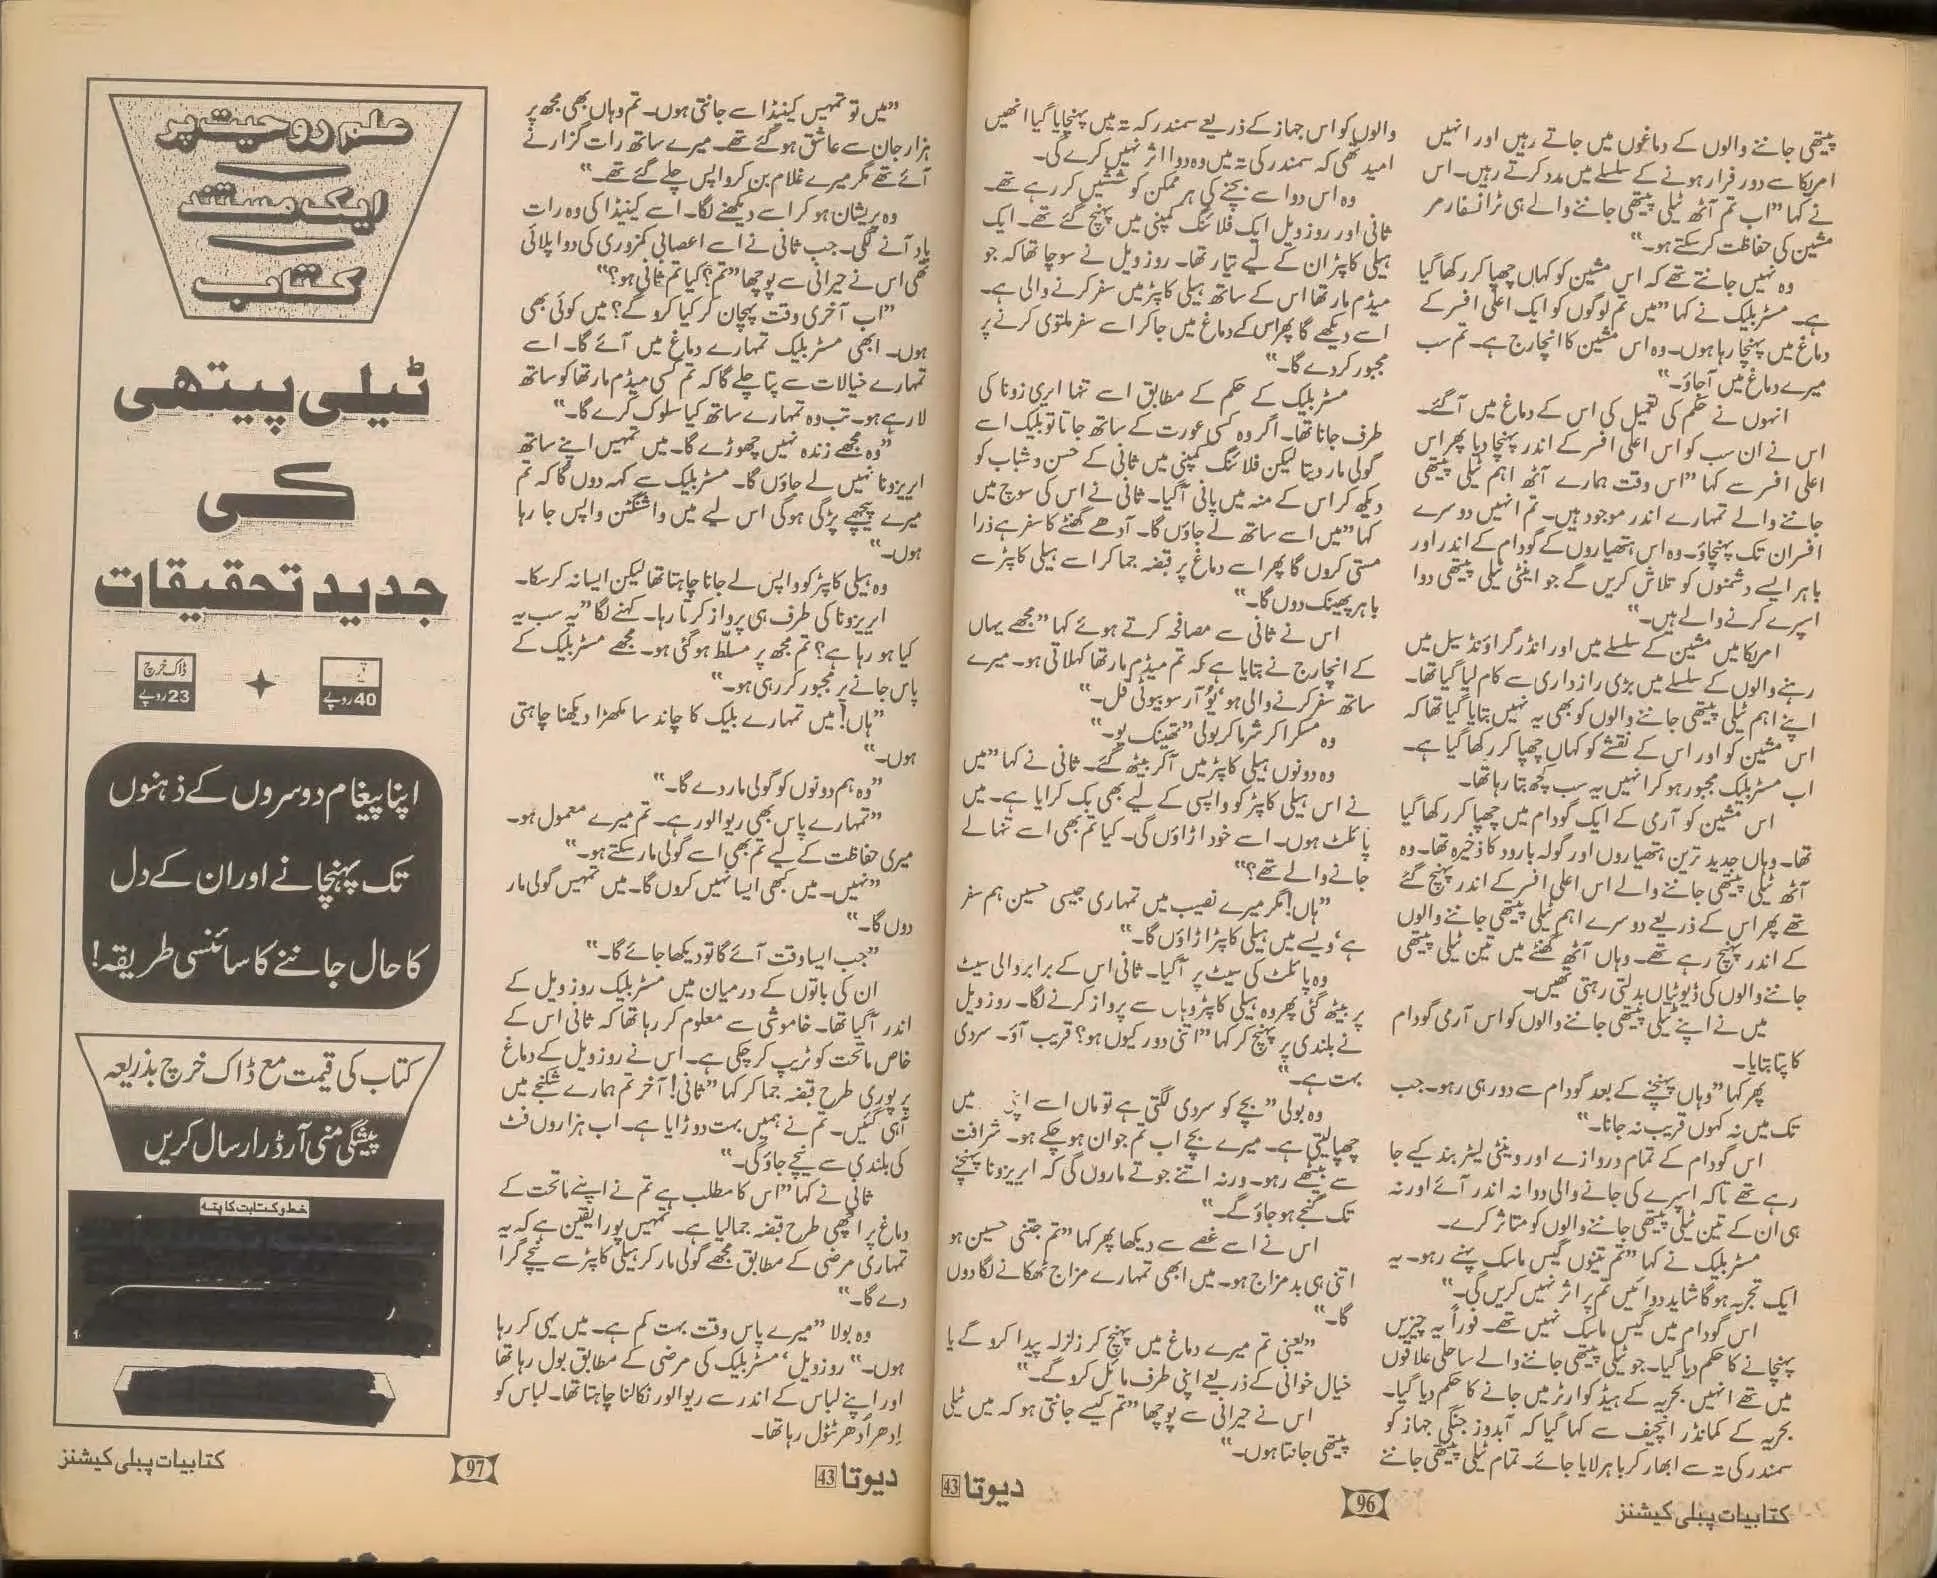 پیتھی جاننے والوں کے دماغوں میں جاتے رہیں اور انہیں
امریکا سے دور فرار ہونے کے سلسلے میں مدد کرتے رہیں۔ اس
نے کہا "اب تم آٹھ ٹیلی پیتھی جاننے والے ہی ٹرانسفارمر
مشین کی حفاظت کرسکتے ہو۔"
وہ نہیں جانتے تھے کہ اس مشین کو کہاں چھپا کر رکھا گیا
ہے۔ مسٹر بلیک نے کہا "میں تم لوگوں کو ایک اعلیٰ افسر کے
دماغ میں پہنچا رہا ہوں۔ وہ اس مشین کا انچارج ہے۔ تم سب
میرے دماغ میں آجاؤ۔"
انہوں نے حکم کی تعمیل کی اس کے دماغ میں آگئے۔
اس نے ان سب کو اس اعلیٰ افسر کے اندر پہنچا دیا پھر اس
اعلیٰ افسر سے کہا "اس وقت ہمارے آٹھ اہم ٹیلی پیتھی
جاننے والے تمہارے اندر موجود ہیں۔ تم انہیں دوسرے
افسران تک پہنچاؤ۔ وہ اس ہتھیاروں کے گودام کے اندر اور
باہر ایسے دشمنوں کو تلاش کریں گے جو اینٹی ٹیلی پیتھی دوا
اسپرے کرنے والے ہیں۔"
امریکا میں مشین کے سلسلے میں اور انڈر گراؤنڈ سیل میں
رہنے والوں کے سلسلے میں بڑی رازداری سے کام لیا گیا تھا۔
اپنے اہم ٹیلی پیتھی جاننے والوں کو بھی یہ نہیں بتایا گیا تھا کہ
اس مشین کو اور اس کے نقشے کو کہاں چھپا کر رکھا گیا ہے۔
اب مسٹر بلیک مجبور ہو کر انہیں یہ سب کچھ بتا رہا تھا۔
اس مشین کو آرمی کے ایک گودام میں چھپا کر رکھا گیا
تھا۔ وہاں جدید ترین ہتھیاروں اور گولہ بارود کا ذخیرہ تھا۔ وہ
آٹھ ٹیلی پیتھی جاننے والے اس اعلیٰ افسر کے اندر پہنچ گئے
تھے پھر اس کے ذریعے دوسرے اہم ٹیلی پیتھی جاننے والوں
کے اندر پہنچ رہے تھے۔ وہاں آٹھ گھنٹے میں تین ٹیلی پیتھی
جاننے والوں کی ڈیوٹیاں بدلتی رہتی تھیں۔
میں نے اپنے ٹیلی پیتھی جاننے والوں کو اس آرمی گودام
کا پتا بتایا۔
پھر کہا "وہاں پہنچنے کے بعد گودام سے دور ہی رہو۔ جب
تک میں نہ کہوں قریب نہ جانا۔"
اس گودام کے تمام دروازے اور وینٹی لیٹر بند کیے جا
رہے تھے تاکہ اسپرے کی جانے والی دوا نہ اندر آئے اور نہ
ہی ان کے تین ٹیلی پیتھی جاننے والوں کو متاثر کرے۔
مسٹر بلیک نے کہا "تم تینوں گیس ماسک پہنے رہو۔ یہ
ایک تجربہ ہوگا شاید دوائیں تم پر اثر نہیں کریں گی۔"
اس گودام میں گیس ماسک نہیں تھے۔ فوراً یہ چیزیں
پہنچانے کا حکم دیا گیا۔ جو ٹیلی پیتھی جاننے والے ساحلی علاقوں
میں تھے انہیں بحریہ کے ہیڈ کوارٹر میں جانے کا حکم دیا گیا۔
بحریہ کے کمانڈر انچیف سے کہا گیا کہ آبدوز جنگی جہاز کو
سمندر کی تہ سے ابھار کر باہر لایا جائے۔ تمام ٹیلی پیتھی جاننے
والوں کو اس جہاز کے ذریعے سمندر کہ تہ میں پہنچایا گیا انھیں
امید تھی کہ سمندر کی تہ میں وہ دوا اثر نہیں کرے گی۔
وہ اس دوا سے بچنے کی ہر ممکن کوششیں کر رہے تھے۔
ثانی اور روزویل ایک فلائنگ کمپنی میں پہنچ گئے تھے۔ ایک
ہیلی کاپٹر ان کے لیے تیار تھا۔ روزویل نے سوچا تھا کہ جو
میڈم مارتھا اس کے ساتھ ہیلی کاپٹر میں سفر کرنے والی ہے۔
اسے دیکھے گا پھر اس کے دماغ میں جا کر اسے سفر ملتوی کرنے پر
مجبور کردے گا۔"
مسٹر بلیک کے حکم کے مطابق اسے تنہا ایری زونا کی
طرف جانا تھا۔ اگر وہ کسی عورت کے ساتھ جاتا تو بلیک اسے
گولی مار دیتا لیکن فلائنگ کمپنی میں ثانی کے حسن و شباب کو
دیکھ کر اس کے منہ میں پانی آگیا۔ ثانی نے اس کی سوچ میں
کہا "میں اسے ساتھ لے جاؤں گا۔ آدھے گھنٹے کا سفر ہے ذرا
مستی کروں گا پھر اسے دماغ پر قبضہ جما کر اسے ہیلی کاپٹر سے
باہر پھینک دوں گا۔"
اس نے ثانی سے مصافحہ کرتے ہوئے کہا "مجھے یہاں
کے انچارج نے بتایا ہے کہ تم میڈم مارتھا کہلاتی ہو۔ میرے
ساتھ سفر کرنے والی ہو' یُو آر سو بیوٹی فل۔"
وہ مسکرا کر شرما کر بولی "تھینک یو۔"
وہ دونوں ہیلی کاپٹر میں آکر بیٹھ گئے۔ ثانی نے کہا "میں
نے اس ہیلی کاپٹر کو واپسی کے لیے بھی بک کرایا ہے۔ میں
پائلٹ ہوں۔ اسے خود اڑاؤں گی۔ کیا تم بھی اسے تنہا لے
جانے والے تھے؟"
"ہاں! مگر میرے نصیب میں تمہاری جیسی حسین ہم سفر
ہے' ویسے میں ہیلی کاپٹر اڑاؤں گا۔"
وہ پائلٹ کی سیٹ پر آگیا۔ ثانی اس کے برابر والی سیٹ
پر بیٹھ گئی پھر وہ ہیلی کاپٹر وہاں سے پرواز کرنے لگا۔ روزویل
نے بلندی پر پہنچ کر کہا "اتنی دور کیوں ہو؟ قریب آؤ۔ سردی
بہت ہے۔"
وہ بولی "بچے کو سردی لگتی ہے تو ماں اسے اپنی میں
چھپا لیتی ہے۔ میرے بچے اب تم جوان ہو چکے ہو۔ شرافت
سے بیٹھے رہو۔ ورنہ اتنے جوتے ماروں گی کہ ایریزونا پہنچنے
تک گنجے ہو جاؤ گے۔"
اس نے اسے غصے سے دیکھا پھر کہا "تم جتنی حسین ہو
اتنی ہی بد مزاج ہو۔ میں ابھی تمہارے مزاج ٹھکانے لگا دوں
گا۔"
"یعنی تم میرے دماغ میں پہنچ کر زلزلہ پیدا کرو گے یا
خیال خوانی کے ذریعے اپنی طرف مائل کرو گے۔"
اس نے حیرانی سے پوچھا "تم کیسے جانتی ہو کہ میں ٹیلی
پیتھی جانتا ہوں۔"
کتابیات پبلی کیشنز
96
دیوتا 43
"میں تو تمہیں کینیڈا سے جانتی ہوں۔ تم وہاں بھی مجھ پر
ہزار جان سے عاشق ہو گئے تھے۔ میرے ساتھ رات گزارنے
آئے تھے مگر میرے غلام بن کر واپس چلے گئے تھے۔"
وہ پریشان ہو کر اسے دیکھنے لگا۔ اسے کینیڈا کی وہ رات
یاد آنے لگی۔ جب ثانی نے اسے اعصابی کمزوری کی دوا پلائی
تھی اس نے حیرانی سے پوچھا "تم؟ کیا تم ثانی ہو؟"
"اب آخری وقت پہچان کر کیا کرو گے؟ میں کوئی بھی
ہوں۔ ابھی مسٹر بلیک تمہارے دماغ میں آئے گا۔ اسے
تمہارے خیالات سے پتا چلے گا کہ تم کسی میڈم مارتھا کو ساتھ
لا رہے ہو۔ تب وہ تمہارے ساتھ کیا سلوک کرے گا۔"
"وہ مجھے زندہ نہیں چھوڑے گا۔ میں تمہیں اپنے ساتھ
ایریزونا نہیں لے جاؤں گا۔ مسٹر بلیک سے کہہ دوں گا کہ تم
میرے پیچھے پڑ گئی ہوگی اس لیے میں واشنگٹن واپس جا رہا
ہوں۔"
وہ ہیلی کاپٹر کو واپس لے جانا چاہتا تھا لیکن ایسا نہ کرسکا۔
ایریزونا کی طرف ہی پرواز کرتا رہا۔ کہنے لگا "یہ سب یہ
کیا ہو رہا ہے؟ تم مجھ پر مسلّط ہو گئی ہو۔ مجھے مسٹر بلیک کے
پاس جانے پر مجبور کر رہی ہو۔"
"ہاں! میں تمہارے بلیک کا چاند سا مکھڑا دیکھنا چاہتی
ہوں۔"
"وہ ہم دونوں کو گولی مار دے گا۔"
"تمہارے پاس بھی ریوالور ہے۔ تم میرے معمول ہو۔
میری حفاظت کے لیے تم بھی اسے گولی مار سکتے ہو۔"
"نہیں۔ میں کبھی ایسا نہیں کروں گا۔ میں تمہیں گولی مار
دوں گا۔"
"جب ایسا وقت آئے گا تو دیکھا جائے گا۔"
ان کی باتوں کے درمیان میں مسٹر بلیک روزویل کے
اندر آگیا تھا۔ خاموشی سے معلوم کر رہا تھا کہ ثانی اس کے
خاص ماتحت کو ٹریپ کر چکی ہے۔ اس نے روزویل کے دماغ
پر پوری طرح قبضہ جما کر کہا "ثانی! آخر تم ہمارے شکنجے میں
آہی گئیں۔ تم نے ہمیں بہت دوڑایا ہے۔ اب ہزاروں فٹ
کی بلندی سے نیچے جاؤ گی۔"
ثانی نے کہا "اس کا مطلب ہے تم نے اپنے ماتحت کے
دماغ پر اچھی طرح قبضہ جما لیا ہے۔ تمہیں پورا یقین ہے کہ یہ
تمہاری مرضی کے مطابق مجھے گولی مار کر ہیلی کاپٹر سے نیچے گرا
دے گا۔"
وہ بولا "میرے پاس وقت بہت کم ہے۔ میں یہی کر رہا
ہوں۔" روزویل' مسٹر بلیک کی مرضی کے مطابق بول رہا تھا
اور اپنے لباس کے اندر سے ریوالور نکالنا چاہتا تھا۔ لباس کو
اِدھر اُدھر ٹٹول رہا تھا۔
علم روحیت پر
ایک مستند
کتاب
ٹیلی پیتھی
کی
جدید تحقیقات
40 روپے
ڈاک خرچ
23 روپے
اپنا پیغام دوسروں کے ذہنوں
تک پہنچانے اور ان کے دل
کا حال جاننے کا سائنسی طریقہ!
کتاب کی قیمت مع ڈاک خرچ بذریعہ
پیشگی منی آرڈر ارسال کریں
خط و کتابت کا پتہ
دیوتا 43
97
کتابیات پبلی کیشنز